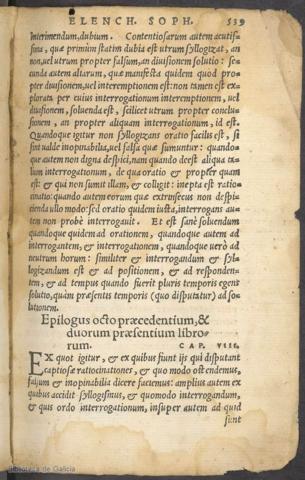 ELENCH. SOPH. 539
interimendum, dubium. Contentiosarum autem acutis-
sima, quæ primùm statim dubia est utrum syllogizat, an
non, uel utrum propter falsum, an diuisionem solutio: se-
cunda autem aliarum, quæ manifesta quidem quod pro-
pter diuisionem, uel interemptionem est: non tamen est ex-
plorata per cuius interrogationum interemptionem, uel
diuisionem, soluenda est, scilicet utrum propter conclu-
sionem, an propter aliquam interrogationum, id est.
Quandoque igitur non syllogizans oratio facilis est, si
sint ualde inopinabilia, uel falsa quæ sumuntur: quando-
que autem non digna despici, nam quando deest aliqua ta-
lium interrogationum, de qua oratio & propter quam
est: & qui non sumit illam, & colligit: inepta est ratio-
cinatio: quando autem eorum quæ extrinsecus non despi-
cienda ullo modo: sed oratio quidem iusta, interrogans au-
tem non probè interrogauit. Et est sanè soluendum
quandoque quidem ad orationem, quandoque autem ad
interrogantem, & interrogationem, quandoque uerò ad
neutrum horum: similiter & interrogandum & syl-
logizandum est & ad positionem, & ad responden-
tem, & ad tempus quando fuerit pluris temporis egens
solutio, quàm præsentis temporis (quo disputatur) ad so-
lutionem.
Epilogus octo præcedentium, &
duorum præsentium libro-
rum. CAP. VIII.
EX quot igitur, & ex quibus fiunt ijs qui disputant
captiosæ ratiocinationes, & quo modo ostendemus,
falsum & inopinabilia dicere faciemus: amplius autem ex
quibus accidit syllogismus, & quomodo interrogandum,
& quis ordo interrogationum, insuper autem ad quid
sint
Biblioteca de Galicia